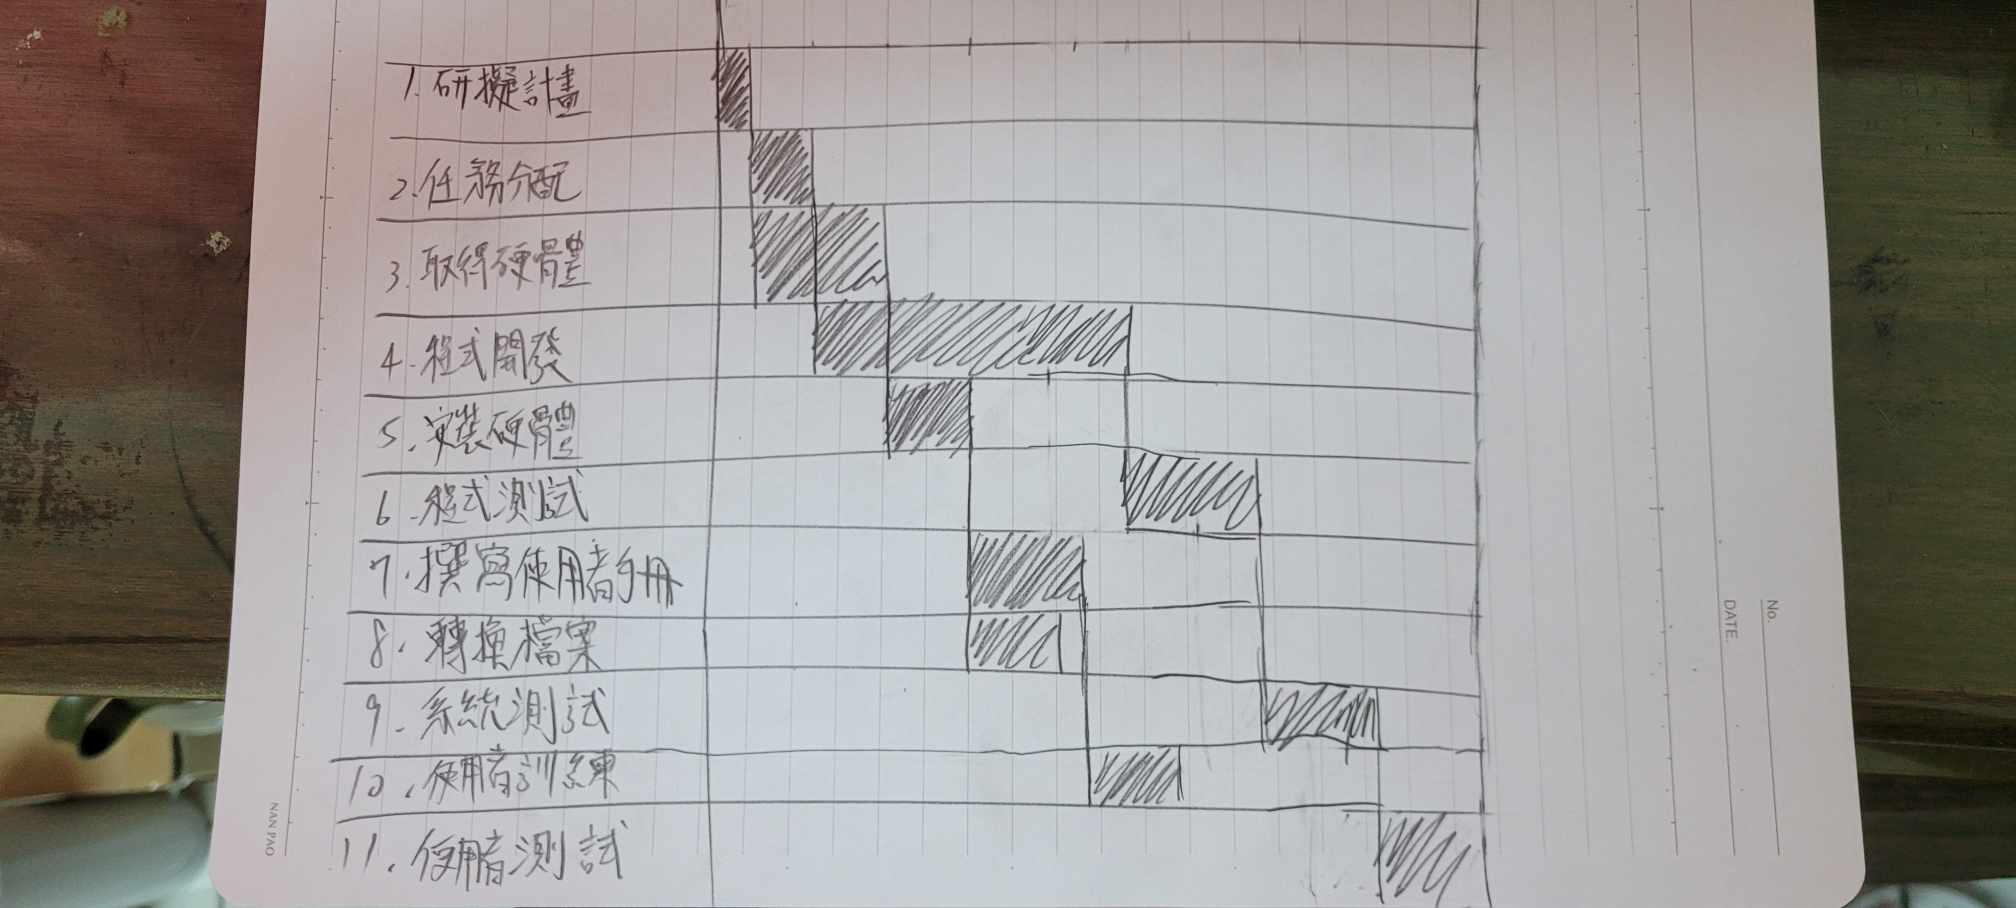 1. 研擬計畫
2. 任務分配
3. 取得硬體
4. 程式開發
5. 安裝硬體
6. 程式測試
7. 撰寫使用者手冊
8. 轉換檔案
9. 系統測試
10. 使用者訓練
11. 使用者測試
No.
DATE.
NAN PAO